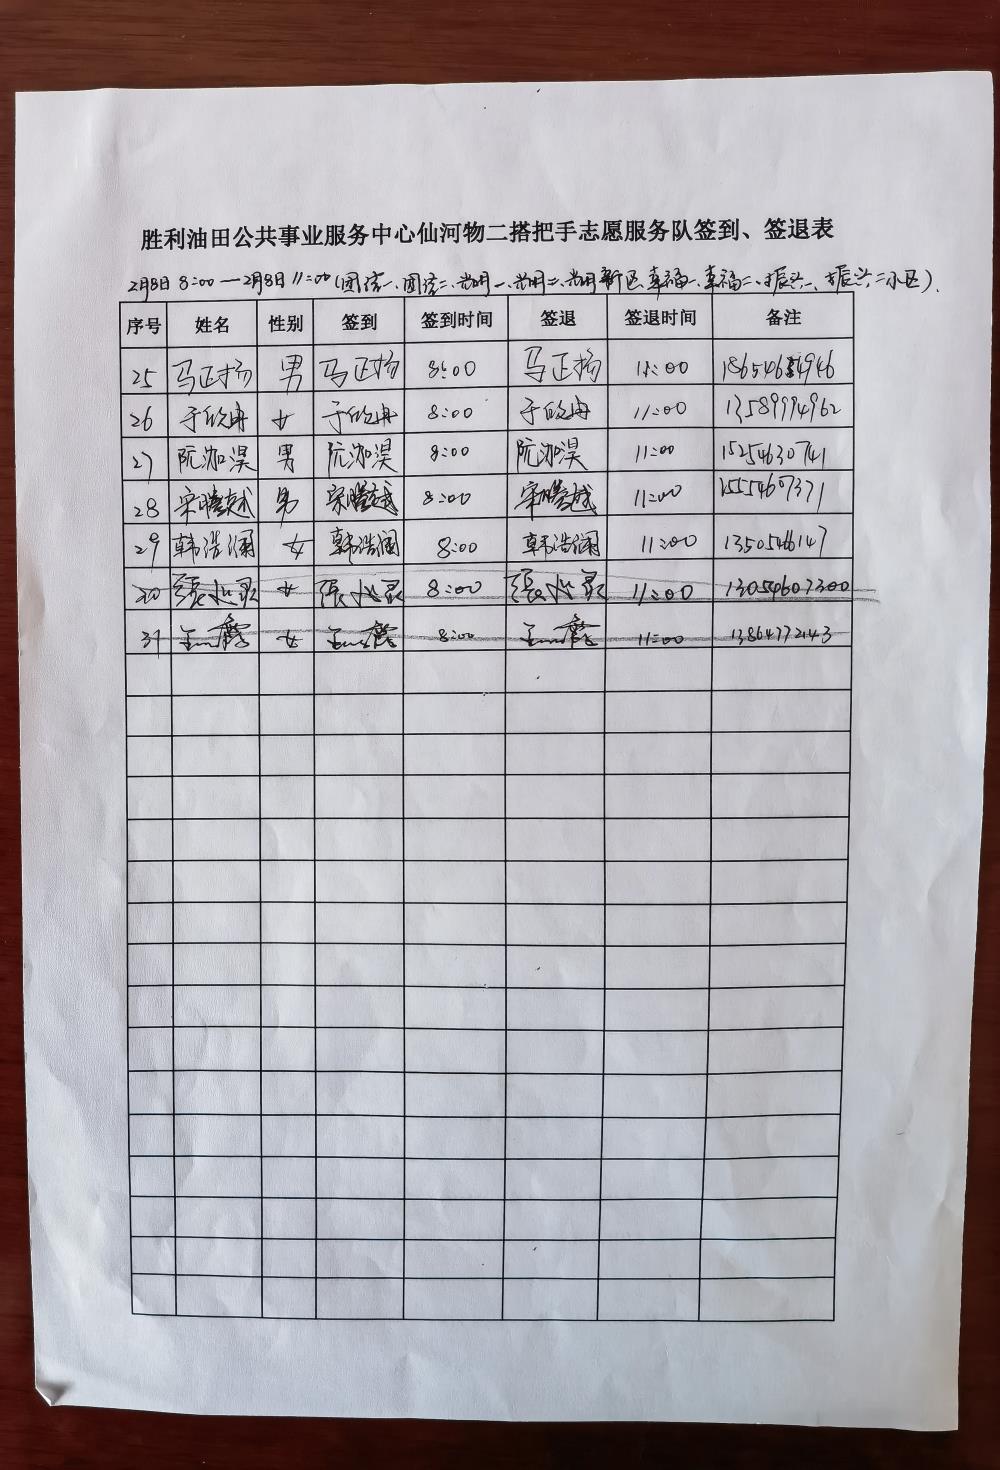 胜利油田公共事业服务中心仙河物二搭把手志愿服务队签到、签退表
2月8日 8:00—2月8日 11:00(团结一、团结二、光明一、光明二、光明新区、幸福一、幸福二、振兴一、振兴二小区).
序号 姓名 性别 签到 签到时间 签退 签退时间 备注
25 马正扬 男 马正扬 8:00 马正扬 11:00 18654654946
26 于欣冉 女 于欣冉 8:00 于欣冉 11:00 13589994962
27 阮泇淏 男 阮泇淏 8:00 阮泇淏 11:00 15254630741
28 宋腾越 男 宋腾越 8:00 宋腾越 11:00 15554607371
29 韩浩澜 女 韩浩澜 8:00 韩浩澜 11:00 13505466147
30 女 8:00 11:00 13054607300
31 女 8:00 11:00 13864772143